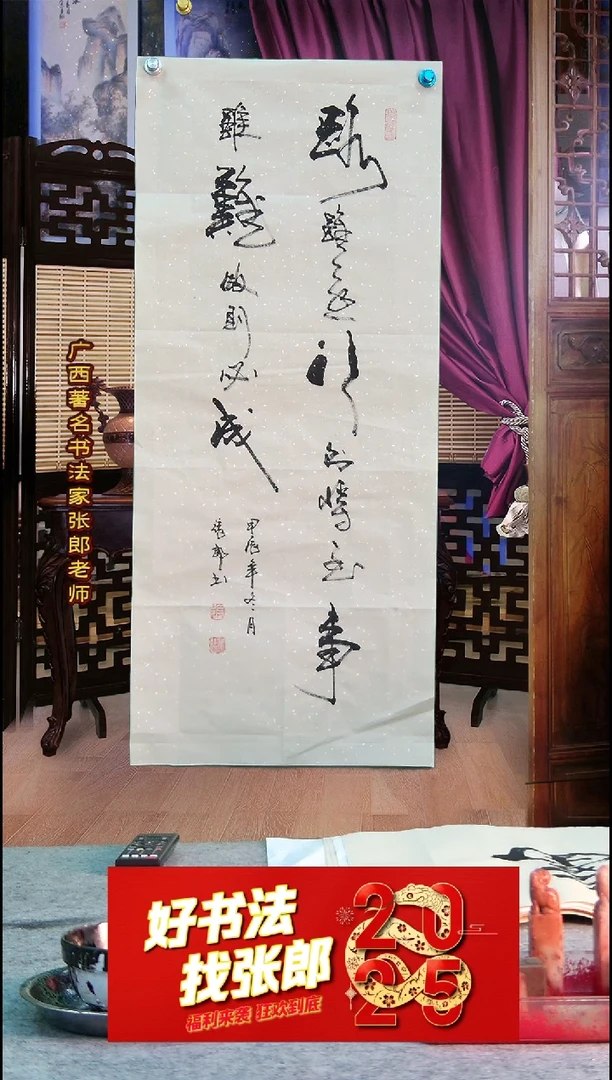 路雖遠行则將至事
雖難做則必成
甲辰年冬月
張郎书
广西著名书法家张郎老师
好书法
找张郎
福利来袭 狂欢到底
20
25